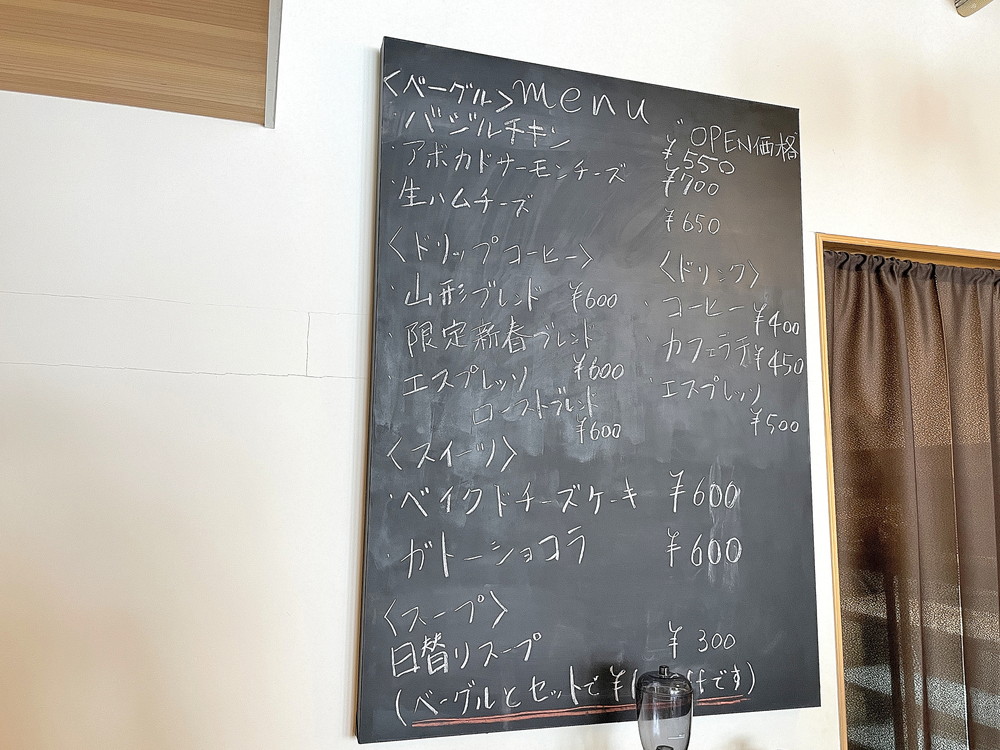 menu
〈ベーグル〉
OPEN価格
・バジルチキン ¥550
・アボカドサーモンチーズ ¥700
・生ハムチーズ ¥650
〈ドリップコーヒー〉
・山形ブレンド ¥600
・限定新春ブレンド
¥600
・エスプレッソ
ローストブレンド
¥600
〈ドリンク〉
・コーヒー ¥400
・カフェラテ ¥450
・エスプレッソ
¥500
〈スイーツ〉
・ベイクドチーズケーキ ¥600
・ガトーショコラ ¥600
〈スープ〉
日替りスープ ¥300
(ベーグルとセットで ¥ です)